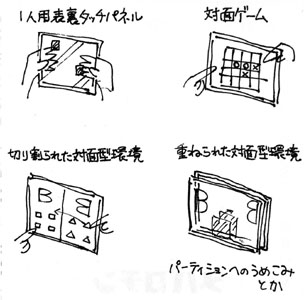 1人用表裏タッチパネル
対面ゲーム
切り割られた対面型環境
重ねられた対面型環境
パーティションへのうめこみ
とか